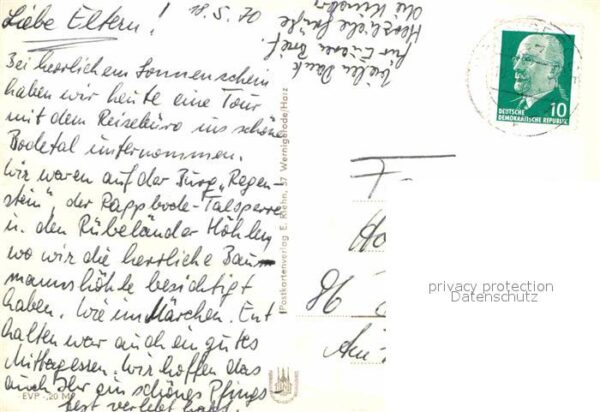 Liebe Eltern! 18.5.70
Bei herrlichem Sonnenschein
haben wir heute eine Tour
mit dem Reisebüro ins schöne
Bodetal unternommen.
Wir waren auf der Burg „Regen-
stein", der Rappbode-Talsperre
u. den Rübeländer Höhlen
wo wir die herrliche Bau-
mannshöhle besichtigt
haben. Wie im Märchen. Ent
halten war auch ein gutes
Mittagessen. Wir hoffen das
auch Ihr ein schönes Pfings
fest verlebt habt.
Vielen Dank
für Euren Brief.
Herzliche Grüße
die Kinder
EVP -,20 M
Postkartenverlag E. Riehn, 37 Wernigerode/Harz
10
DEUTSCHE
DEMOKRATISCHE REPUBLIK
F
Ho
86
Am
privacy protection
Datenschutz